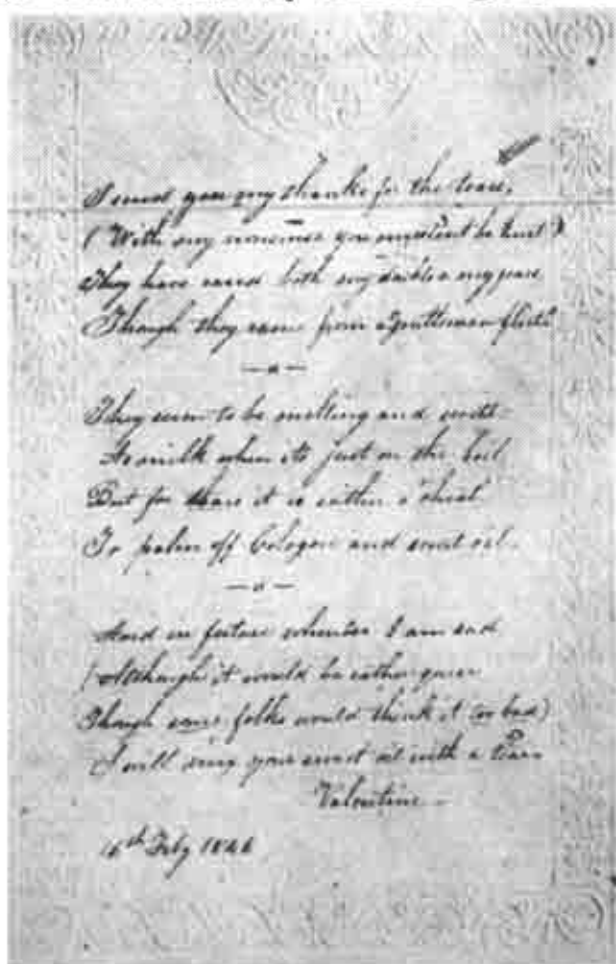 I send you my thanks for the tears,
(With my nonsense you mustn't be hurt)
They have eased both my doubts & my fears
Though they came from a gentleman flirt.
They seem to be melting and sweet
As milk when its just on the boil
But for tears it is rather a cheat
To palm off Cologne and sweet oil.
And in future whenever I am sad
(Although it would be rather queer
Though some folks would think it too bad)
I will mix your sweet oil with a tear
Valentine
16th Feby